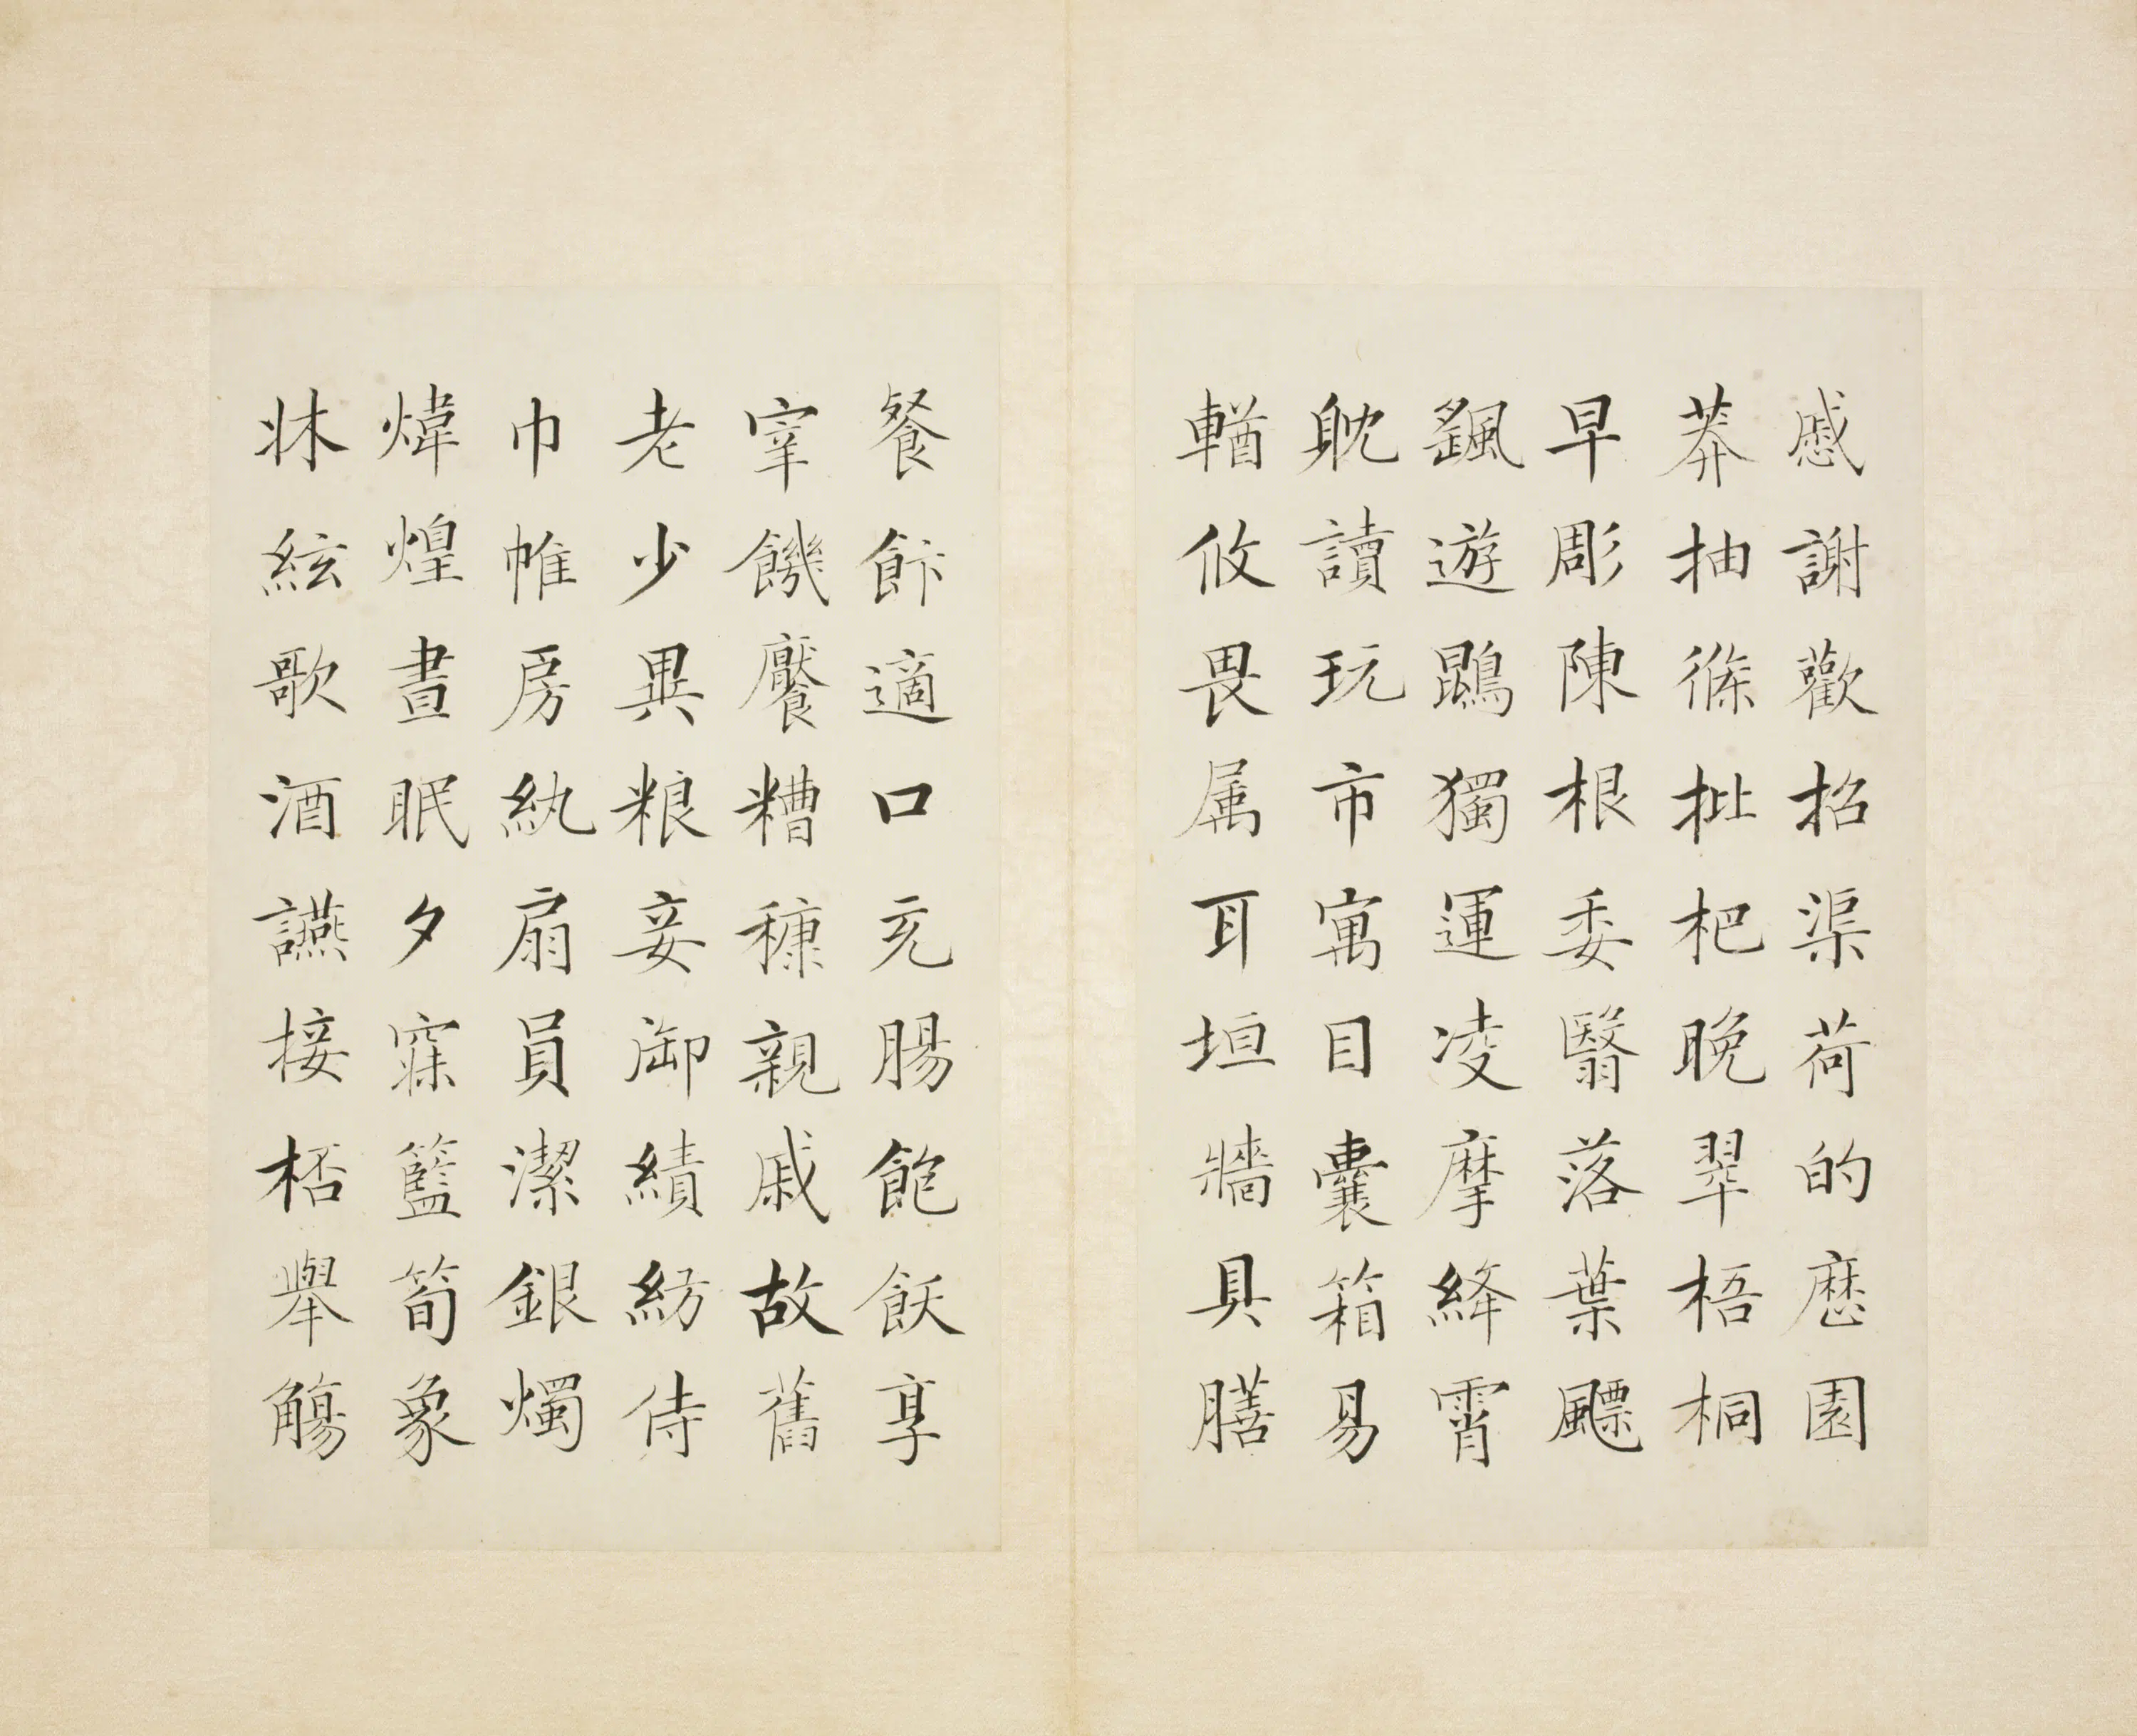 慼謝歡招渠荷的歷園
莽抽條枇杷晚翠梧桐
早彫陳根委翳落葉飄
颻遊鵾獨運凌摩絳霄
耽讀玩市寓目囊箱易
輶攸畏属耳垣牆具膳
餐飰適口充腸飽飫享
宰饑饜糟糠親戚故舊
老少異粮妾御績紡侍
巾帷房紈扇員潔銀燭
煒煌晝眠夕寐籃筍象
牀絃歌酒讌接杯舉觴